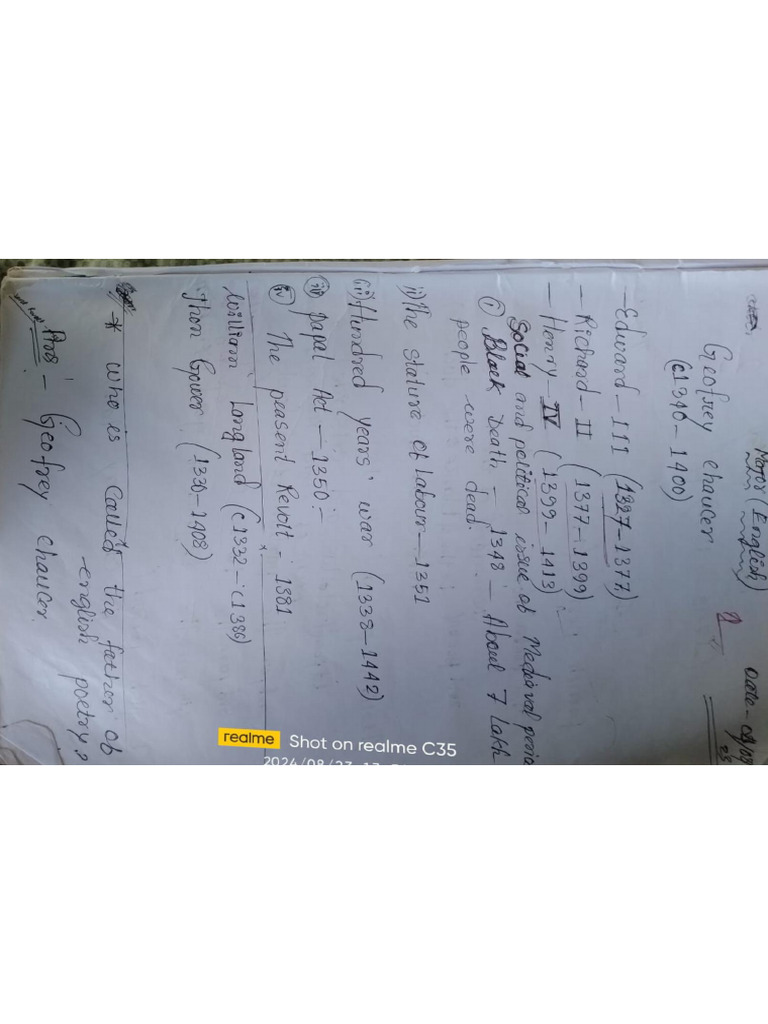 Major (English)
Date - 09/09
23
1
Geofrey chaucer
(c1340 - 1400)
- Edward - III (1327-1377)
- Richard - II (1377-1399)
- Henry - IV (1399-1413)
Social and political issue of Medieval perio
① Black Death - 1348 - About 7 lakh
people were dead.
ii) The Stature of Labour - 1351
(iii) Hundred years' war (1338-1442)
iv Papal Act - 1350 :-
iv The peasent Revolt - 1381
William Longland (c1332 - c1386)
Jhon Gower (1330-1408)
* Who is called the father of
english poetry?
Ans' - Geofrey chaucer.
realme Shot on realme C35